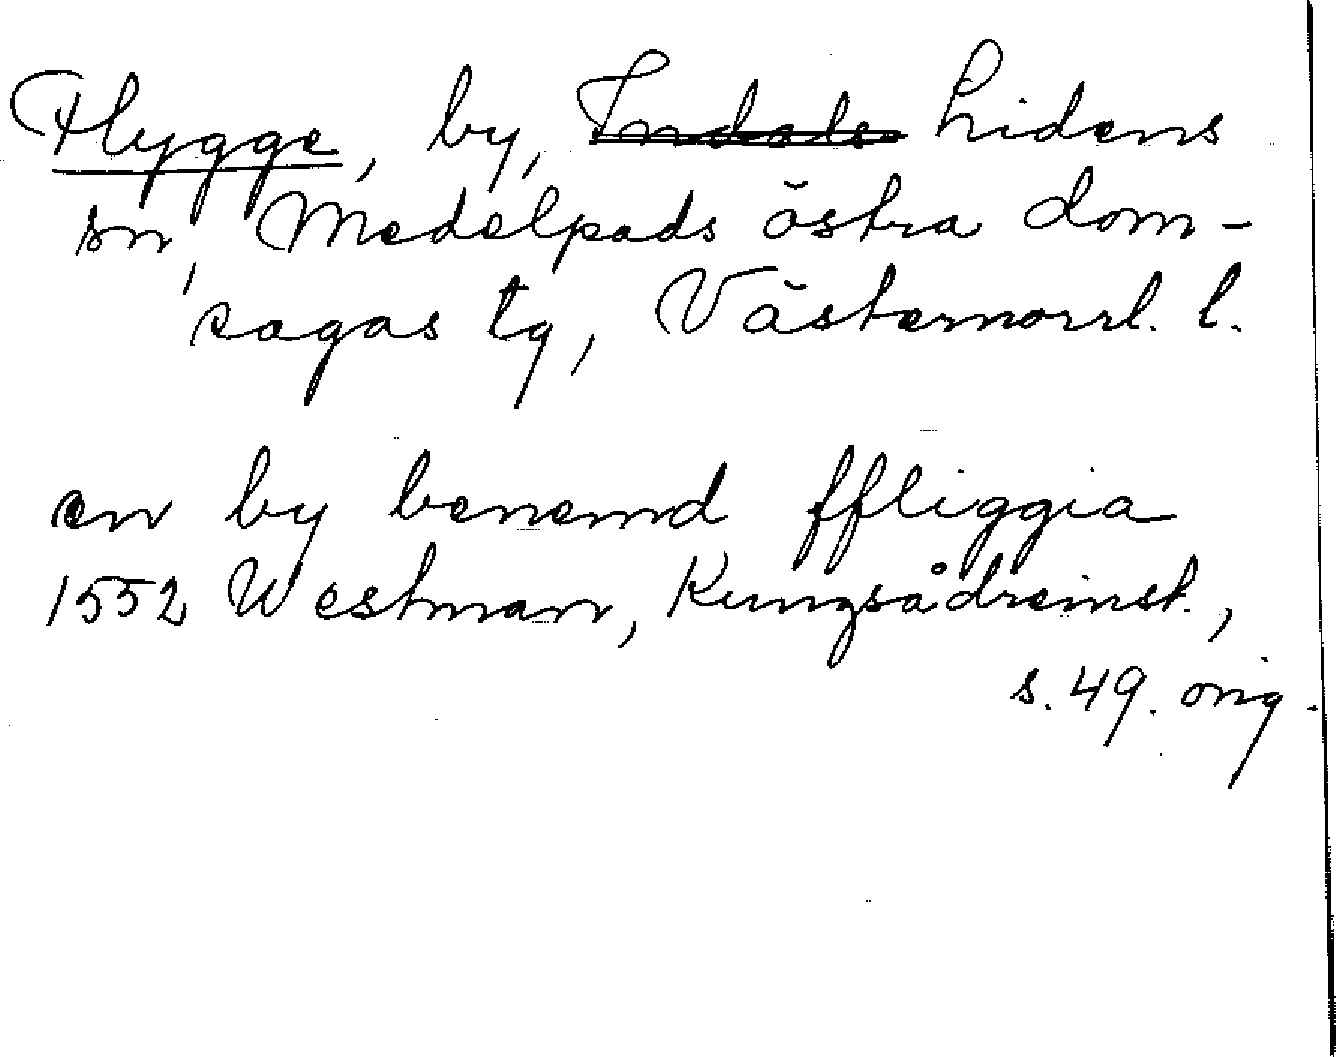 Flygge, by, Indals Lidens
sn, Medelpads östra dom-
sagas tg, Västernorrl. l.
en by benemd ffliggia
1552 Westman, Kungsådreinst.,
s. 49. orig.